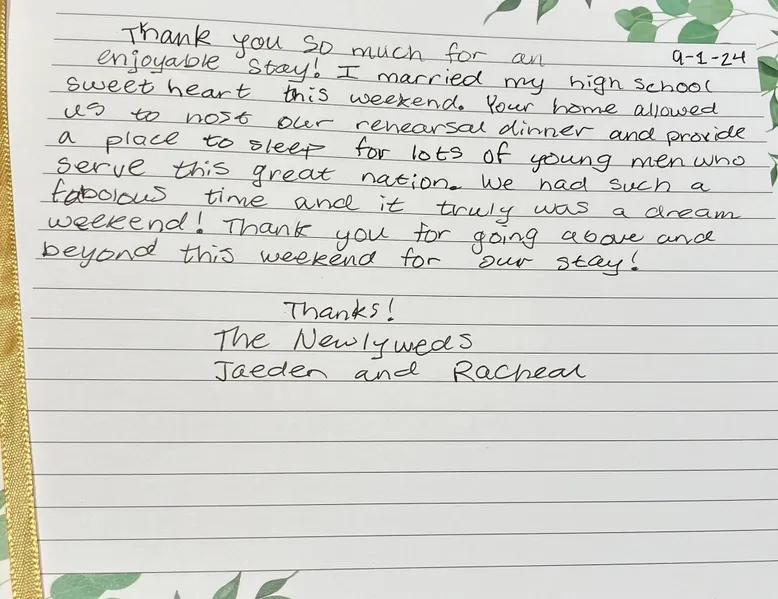 Thank you so much for an 9-1-24
enjoyable stay! I married my high school
sweet heart this weekend. Your home allowed
us to host our rehearsal dinner and provide
a place to sleep for lots of young men who
serve this great nation. We had such a
fabolous time and it truly was a dream
weekend! Thank you for going above and
beyond this weekend for our stay!
Thanks!
The Newlyweds
Jaeden and Racheal